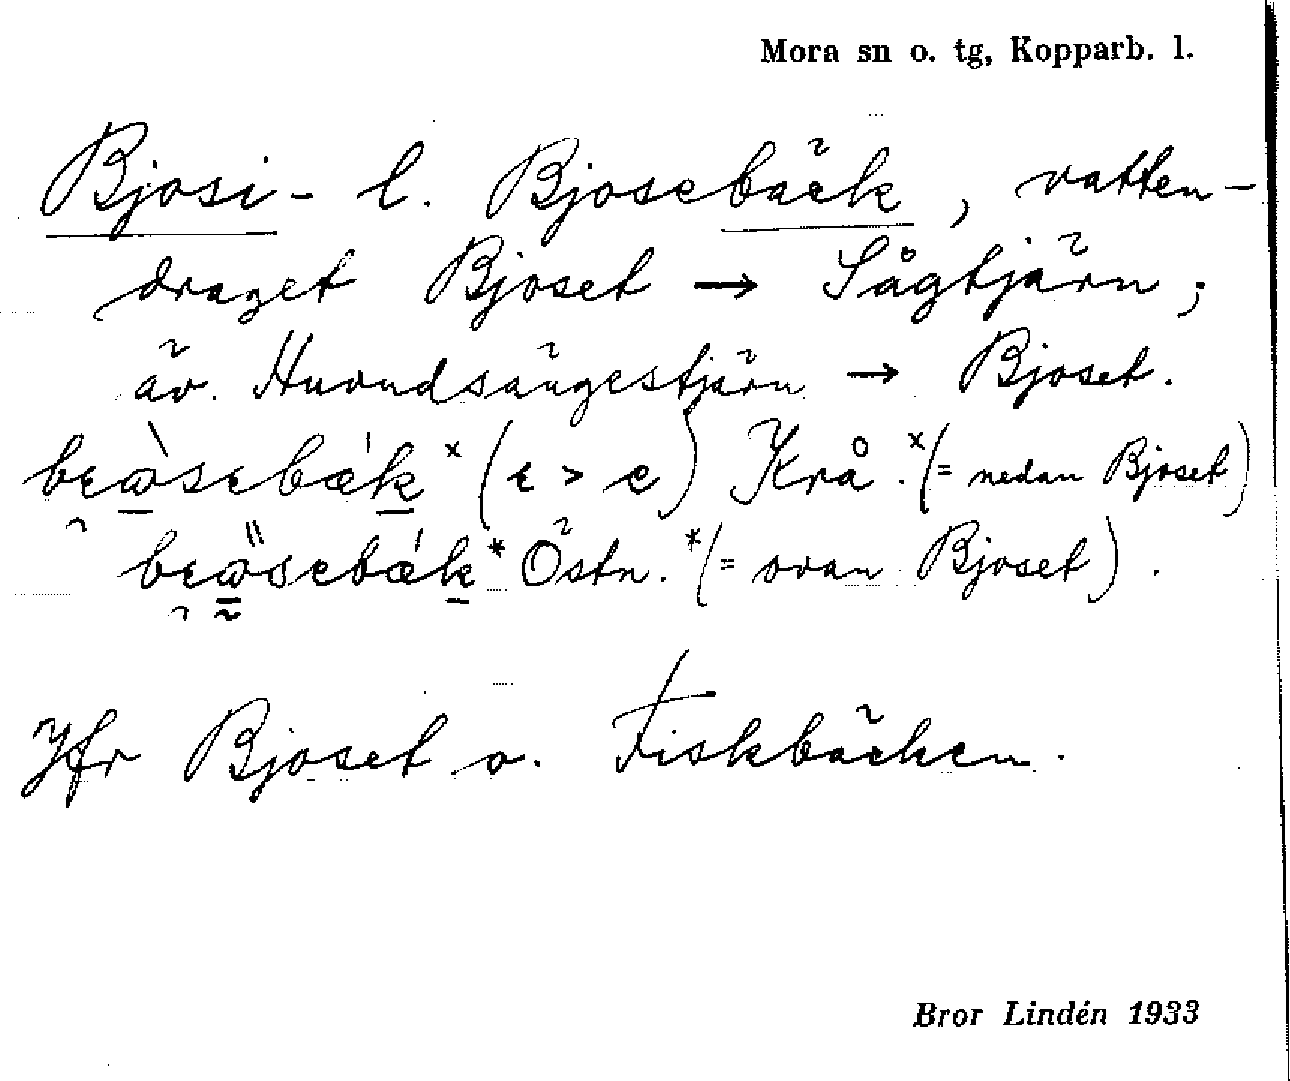 Mora sn o. tg, Kopparb. l.
Bjosi- l. Bjosebäck, vatten-
draget Bjoset → Sågtjärn;
äv. Huvudsängestjärn → Bjoset.
(ε > e) Krå.x (= nedan Bjoset)
Östn.* (= ovan Bjoset).
Jfr Bjoset o. Fiskbäcken.
Bror Lindén 1933